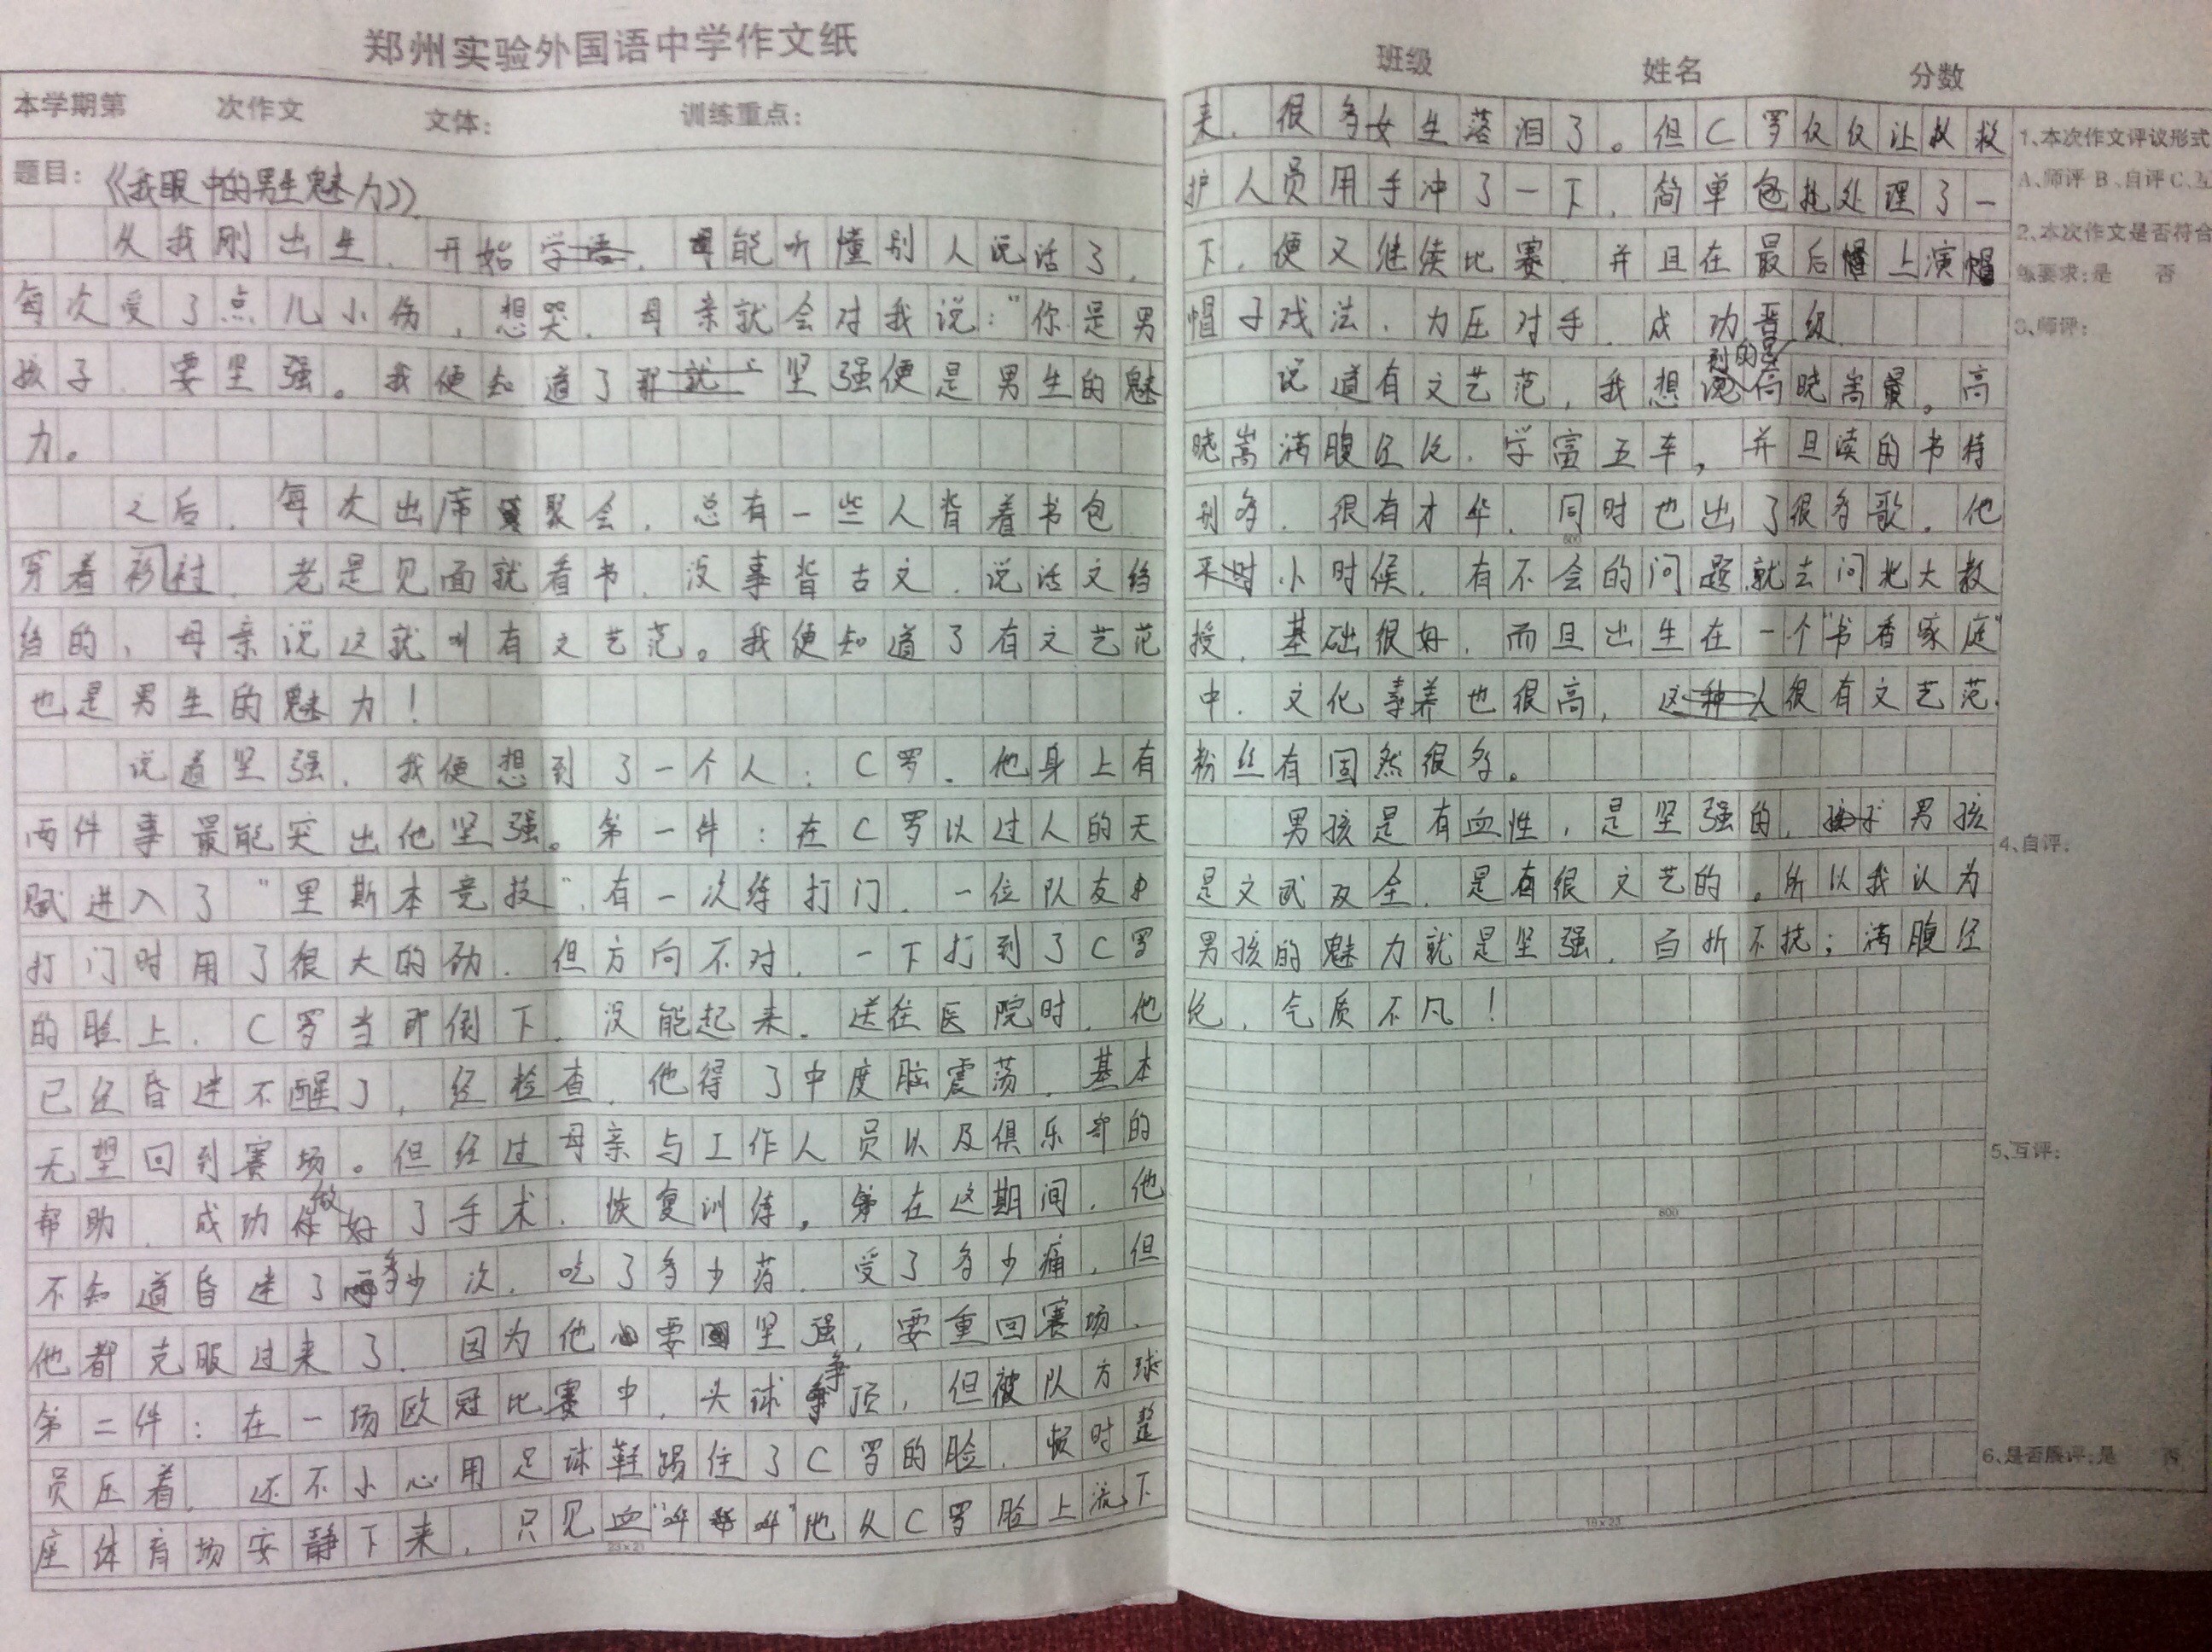 郑州实验外国语中学作文纸
本学期第 次作文 文体： 训练重点：
题目：《我眼中的男生魅力》
从我刚出生，开始学，能听懂别人说话了，
每次受了点儿小伤，想哭，母亲就会对我说："你是男
孩子，要坚强。我便知道了坚强便是男生的魅
力。
之后，每次出席聚会，总有一些人背着书包，
穿着衫衬，老是见面就看书，没事背古文，说话文绉
绉的，母亲说这就叫有文艺范。我便知道了有文艺范
也是男生的魅力！
说道坚强，我便想到了一个人：C罗。他身上有
两件事最能突出他坚强。第一件：在C罗以过人的天
赋进入了"里斯本竞技"，有一次练打门，一位队友
打门时用了很大的劲，但方向不对，一下打到了C罗
的脸上，C罗当即倒下，没能起来。送往医院时，他
已经昏迷不醒了，经检查，他得了中度脑震荡，基本
无望回到赛场。但经过母亲与工作人员以及俱乐部的
帮助，成功做好了手术，恢复训练。在这期间，他
不知道昏迷了多少次，吃了多少药，受了多少痛，但
他都克服过来了，因为他要坚强，要重回赛场。
第二件：在一场欧冠比赛中，头球争顶，但被队方球
员压着，还不小心用足球鞋踢住了C罗的脸，顿时整
座体育场安静下来，只见血"哗哗"地从C罗脸上流下
23×21
班级 姓名 分数
来，很多女生落泪了。但C罗仅仅让救
护人员用手冲了一下，简单包扎处理了一
下，便又继续比赛，并且在最后上演
帽子戏法，力压对手，成功晋级。
说道有文艺范，我想到的是高晓嵩。高
晓嵩满腹经纶，学富五车，并且读的书特
别多，很有才华，同时也出了很多歌。他
600
小时候，有不会的问题就去问北大教
授，基础很好，而且出生在一个"书香家庭"
中，文化素养也很高，很有文艺范，
粉丝有固然很多。
男孩是有血性，是坚强的，男孩
是文武双全，是有很文艺的。所以我认为
男孩的魅力就是坚强，百折不挠；满腹经
纶，气质不凡！
800
19×23
1、本次作文评议形式
A、师评 B、自评 C、互
2、本次作文是否符合
练要求：是 否
3、师评：
4、自评：
5、互评：
6、是否展评：是 否